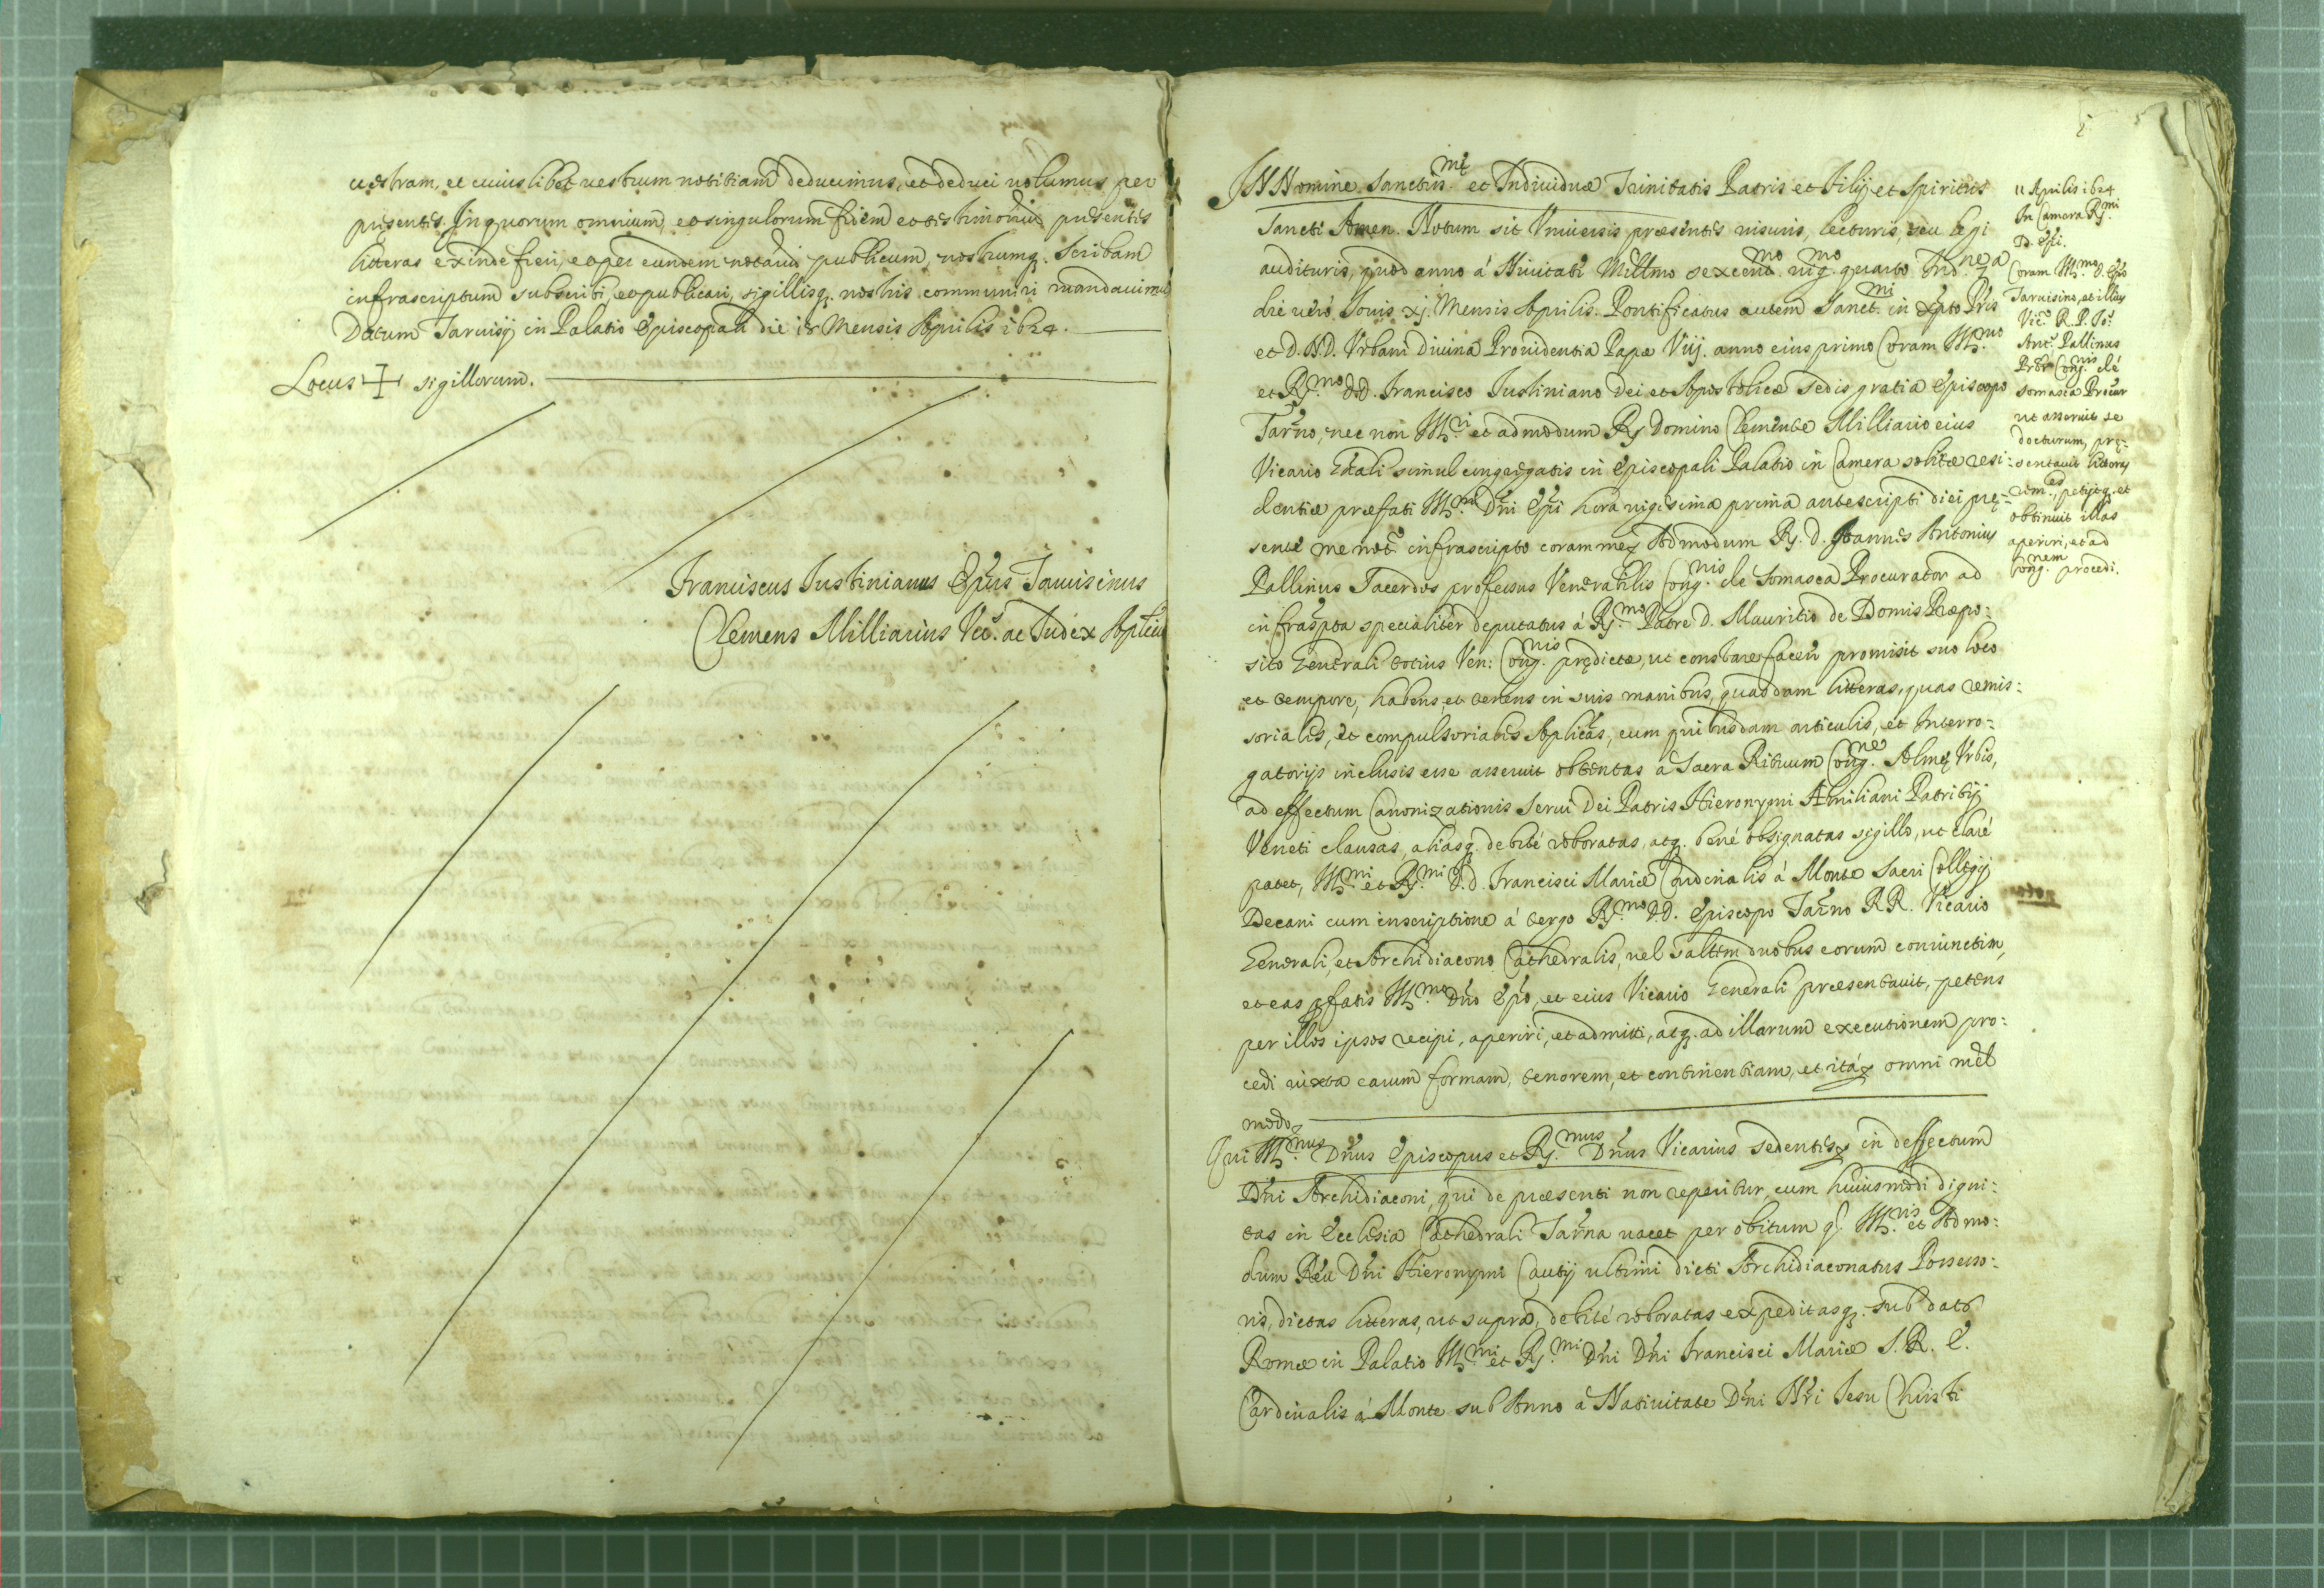 uestram, et cuiuslibet uestrum notitiam deducimus, et deduci uolumus per
presentes. In quorum omnium, et singulorum fidem et testimonium presentes
litteras exinde fieri, et per eundem notarium publicum, nostrumq. Scribam
infrascriptum subscribi, et publicari, sigillisq. nostris communiri mandauimus
Datum Taruisij in Palatio Episcopali die Mensis Aprilis 1624.
Locus + sigillorum.
Franciscus Iustinianus Epus Taruisinus
Clemens Milliarius Vic. ac Iudex Aplicus
5
IN Nomine Sanctissme et Indiuiduæ Trinitatis Patris et Filij et Spiritus
Sancti Amen. Notum sit Vniuersis præsentes uisuris, lecturis, seu legi
audituris, quod anno á Natiuitate Millmo sexcenmo uigmo quarto Indne 7a
die ueró Iouis xj. Mensis Aprilis. Pontificatus autem Sanctmi in Xpto Pris
et D.N.D. Vrbani Diuina Prouidentia Papæ Viij. anno eius primo Coram Illmo
et Rmo D.D. Francisco Iustiniano Dei et Apostolicæ Sedis gratia Episcopo
Taruno, nec non Illri et admodum R. Domino Clemente Milliario eius
Vicario Gnali simul congregatis in Episcopali Palatio in Camera solitæ resi:
dentiæ præfati Illmi Dni Epi hora uigesima prima antescripti diei pre:
sente me not. infrascripto coram meq Admodum R. D. Ioannes Antonius
Pallinus Sacerdos professus Venerabilis Congnis de Somasca Procurator ad
infraspta specialiter deputatus á Rmo Patre D. Mauritio de Domis Præpo:
sito Generali totius Ven: Congnis predictæ, ut constare facere promisit suo loco
et tempore, habens, et tenens in suis manibus, quasdam litteras, quas remis:
soriales, et compulsoriales Aplicas, cum quibusdam articulis, et Interro:
gatorijs inclusis esse asseruit obtentas a Sacra Rituum Congne Almę Vrbis,
ad effectum Canonizationis Serui Dei Patris Hieronymi Æmiliani Patritij
Veneti clausas, aliasq. debité roboratas, atq. bené obsignatas sigillo, ut claré
patet, Illmi et Rmi D.D. Francisci Mariæ Cardinalis á Monte Sacri Collegij
Decani cum inscriptione á tergo Rmo D.D. Episcopo Taruno R.R. Vicario
Generali, et Archidiacono Cathedralis, uel saltem duobus eorum coniunctim,
et eas pfatis Illmo Dno Epo, et eius Vicario Generali præsentauit, petens
per illos ipsos recipi, aperiri, et admitti, atq. ad illarum executionem pro:
cedi iuxta earum formam, tenorem, et continentiam, et ita omni mel
modo
Qui Illmus Dnus Episcopus et Rmus Dnus Vicarius sedentes in deffectum
Dni Archidiaconi, qui de præsenti non reperitur, cum huiusmodi digni:
tas in Ecclesia Cathedrali Taruna uacet per obitum q. Illris et Admo:
dum Reu Dni Hieronymi Cautij ultimi dicti Archidiaconatus Possesso:
ris, dictas litteras, ut supra, debité roboratas expeditasq. sub dato
Romæ in Palatio Illmi et Rmi Dni Dni Francisci Mariæ S.R.E.
Cardinalis á Monte sub Anno a Natiuitate Dni Nri Iesu Christi
11 Aprilis 1624
In Camera Rmi
D. Epi.
Coram Illmo D. Epo
Taruisino, et illius
Vic. R.P. Io.
Ant. Pallinus
Pror Congnis de
Somasca Procur
ut asseruit se
docturum, pre:
sentauit litteras
rem., petijtq. et
obtinuit illas
aperiri, et ad
Congnem procedi.